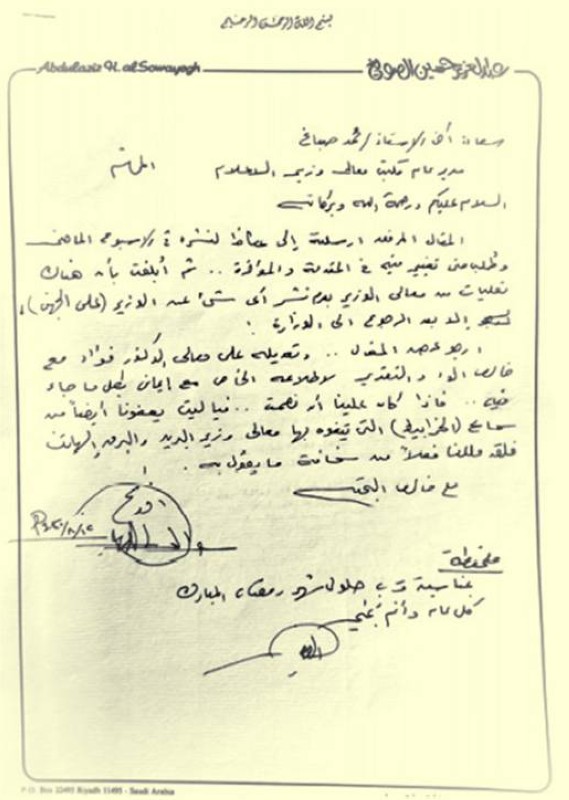 بسم الله الرحمن الرحيم
Abdulaziz H. al Sowayegh
عبدالعزيز حسين الصويغ
سعادة أخي الاستاذ / محمد صباغ
مدير عام مكتب معالي وزير الاعلام
السلام عليكم ورحمة الله وبركاته
المقال المرفق ارسلته إلى عكاظ لنشره في الاسبوع الماضي
وطلب مني تغيير فيه في المقدمة والمؤخرة .. ثم أبلغت بأن هناك
تعليمات من معالي الوزير بعدم نشر أي شئ عن الوزير (على الجهني)،
إلا بعد الرجوع الى الوزارة !
ارجو عرضه المقال .. وتحويله على معالي الدكتور فؤاد مع
خالص الود والتقدير لاطلاعه الخاص مع إيماني بكل ما جاء
فيه .. فاذا كان علينا أن نصمت .. فياليت يعفونا أيضاً من
سماع (الخرابيط) التي يتفوه بها معالي وزير البريد والبرق والهاتف
فلقد مللنا فعلاً من سخافة ما يقول به .
مع خالص التحية
ملاحظة
بمناسبة قرب حلول شهر رمضان المبارك
كل عام وأنتم بخير
P.O. Box 22495 Riyadh 11495 - Saudi Arabia